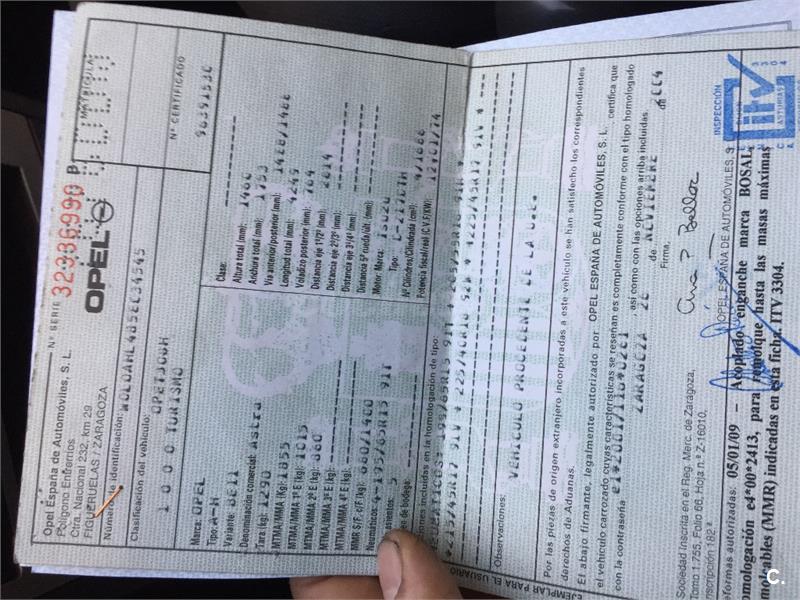 Nº SERIE 32336990 B
Opel España de Automóviles, S. L.
Polígono Entrerríos
Ctra. Nacional 232, km 29
FIGUERUELAS / ZARAGOZA
OPEL
MATRICULA
Nº CERTIFICADO
9839153C
Número de identificación:
W0L0AHL485EC34545
Clasificación del vehículo:
1 0 0 0 TURISMO
Marca: OPEL
Tipo: A-H
Variante: BE11
Denominación comercial: Astra
Tara (kg): 1290
MTMA/MMA (Kg): 1855
MTMA/MMA 1º E (kg): 1015
MTMA/MMA 2º E (kg): 860
MTMA/MMA 3º E (kg):
MTMA/MMA 4º E (kg):
MMR S/F, c/F (kg): 680/1400
Neumáticos: 4-195/65R15 91T
asientos: 5
de bodega:
Clase:
Altura total (mm): 1460
Anchura total (mm): 1753
Vía anterior/posterior (mm): 1488/1488
Longitud total (mm): 4249
Voladizo posterior (mm): 764
Distancia eje 1º/2º (mm): 2614
Distancia eje 2º/3º (mm):
Distancia eje 3º/4º (mm):
Distancia 5ª rueda/últ. (mm):
Motor: Marca: ISUZU
Tipo: C-Z17DTH
Nº Cilindros/Cilindrada (cm³): 4/1686
Potencia fiscal/real (C.V.F/KW):
incluidas en la homologación de tipo:
Observaciones: VEHICULO PROCEDENTE DE LA U.E.
Por las piezas de origen extranjero incorporadas a este vehículo se han satisfecho los correspondientes
derechos de Aduanas.
El abajo firmante, legalmente autorizado por OPEL ESPAÑA DE AUTOMÓVILES, S. L., certifica que
el vehículo carrozado cuyas características se reseñan es completamente conforme con el tipo homologado
con la contraseña así como con las opciones arriba incluidas.
ZARAGOZA 26 de NOVIEMBRE de 2004
Firma,
OPEL ESPAÑA DE AUTOMÓVILES, S
EJEMPLAR PARA EL USUARIO
Sociedad inscrita en el Reg. Merc. de Zaragoza,
Tomo 1.755, Folio 66, Hoja n.º Z-16010,
Inscripción 182ª
INSPECCIÓN
itv
ASTURIAS
formas autorizadas: 05/01/09 – Acoplado enganche marca BOSAL
omologación e4*00*2413, para remolque hasta las masas máximas
molcables (MMR) indicadas en esta ficha. ITV 3304.
C.